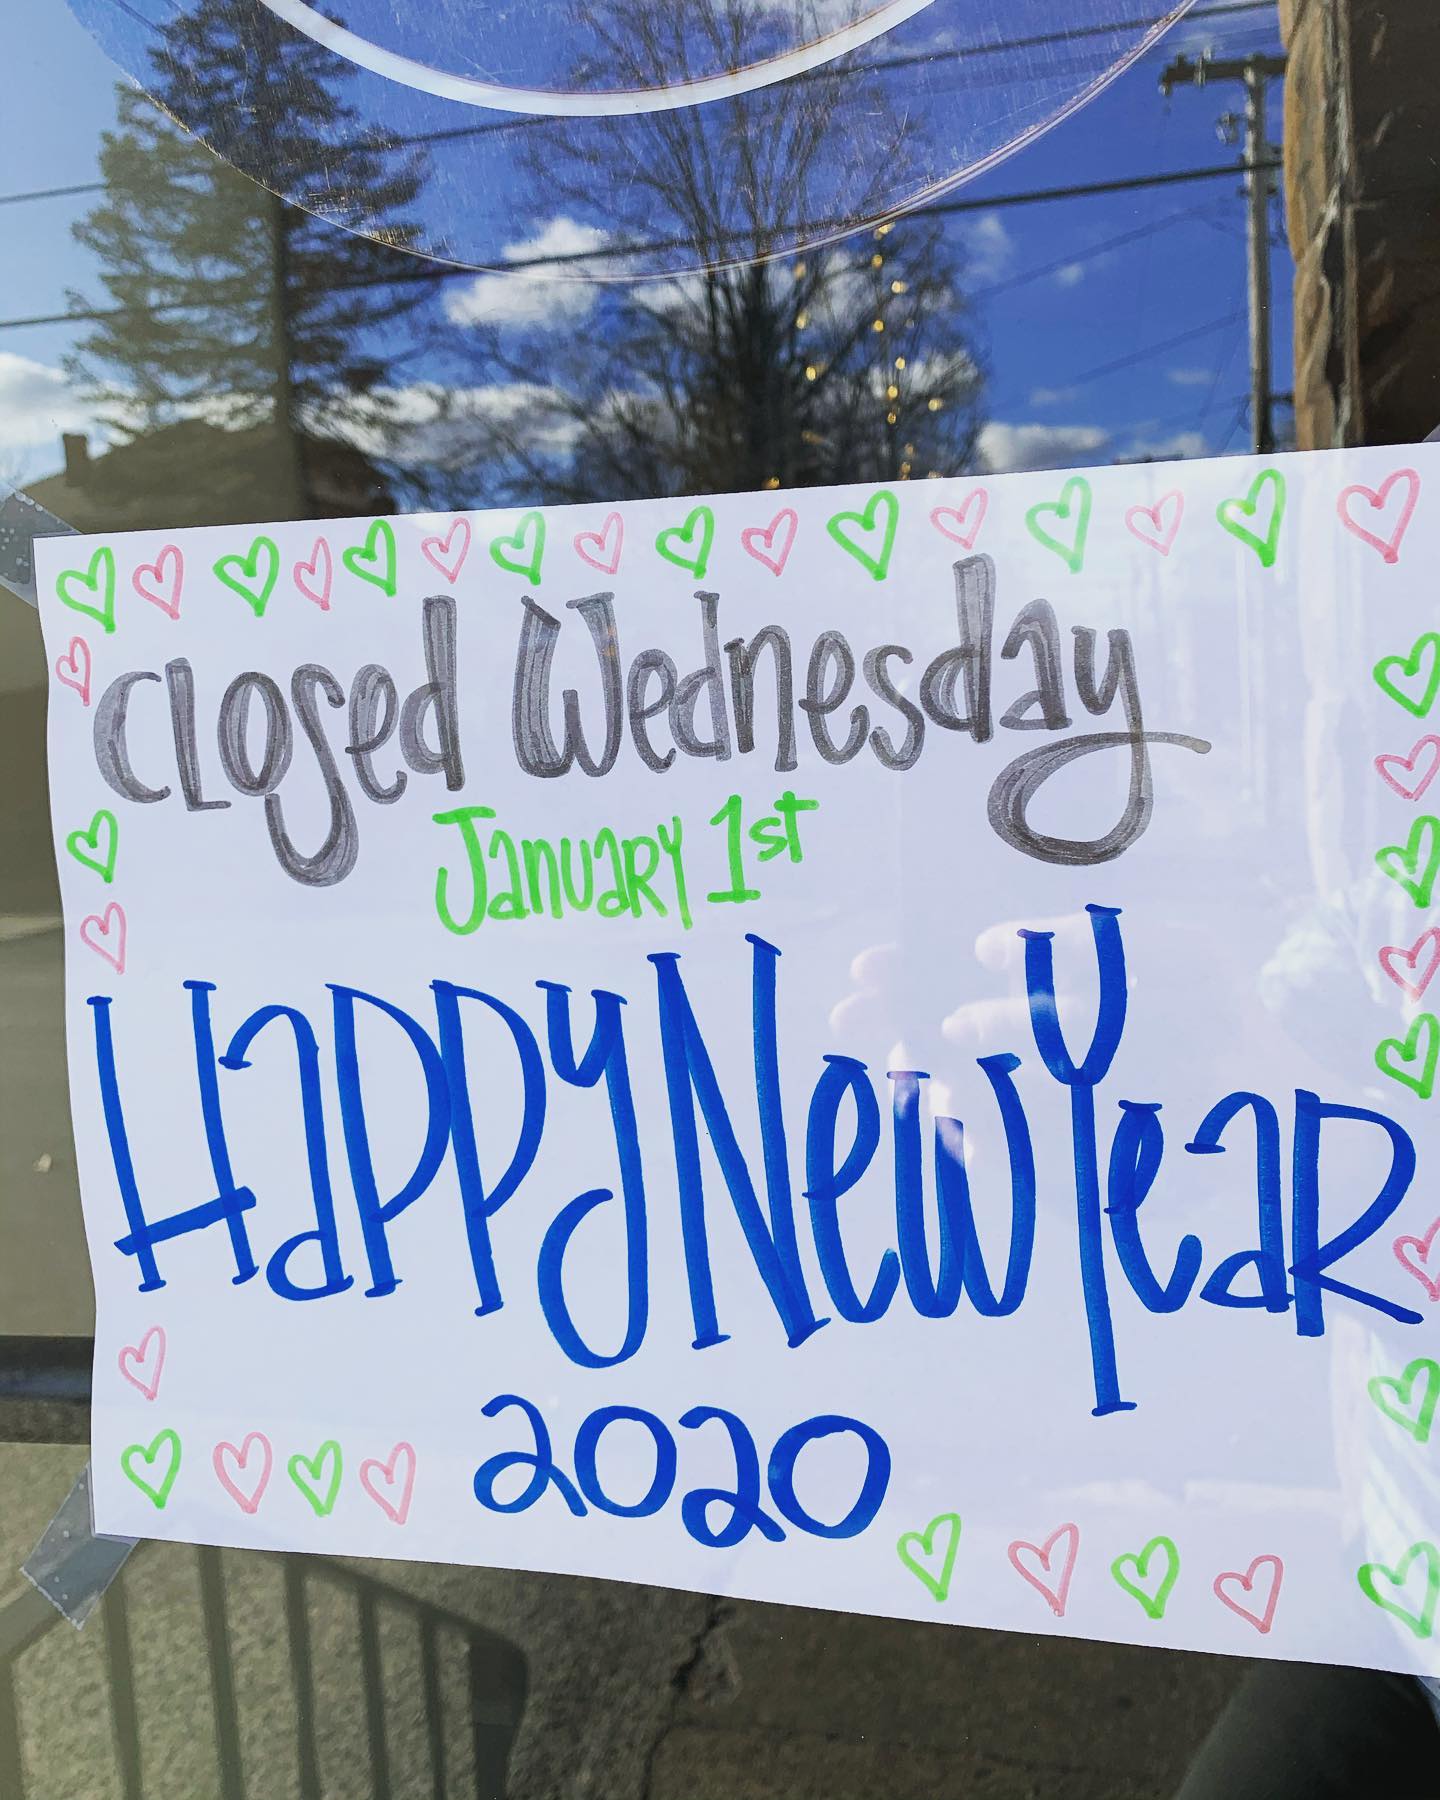 Closed Wednesday
January 1st
Happy New Year
2020